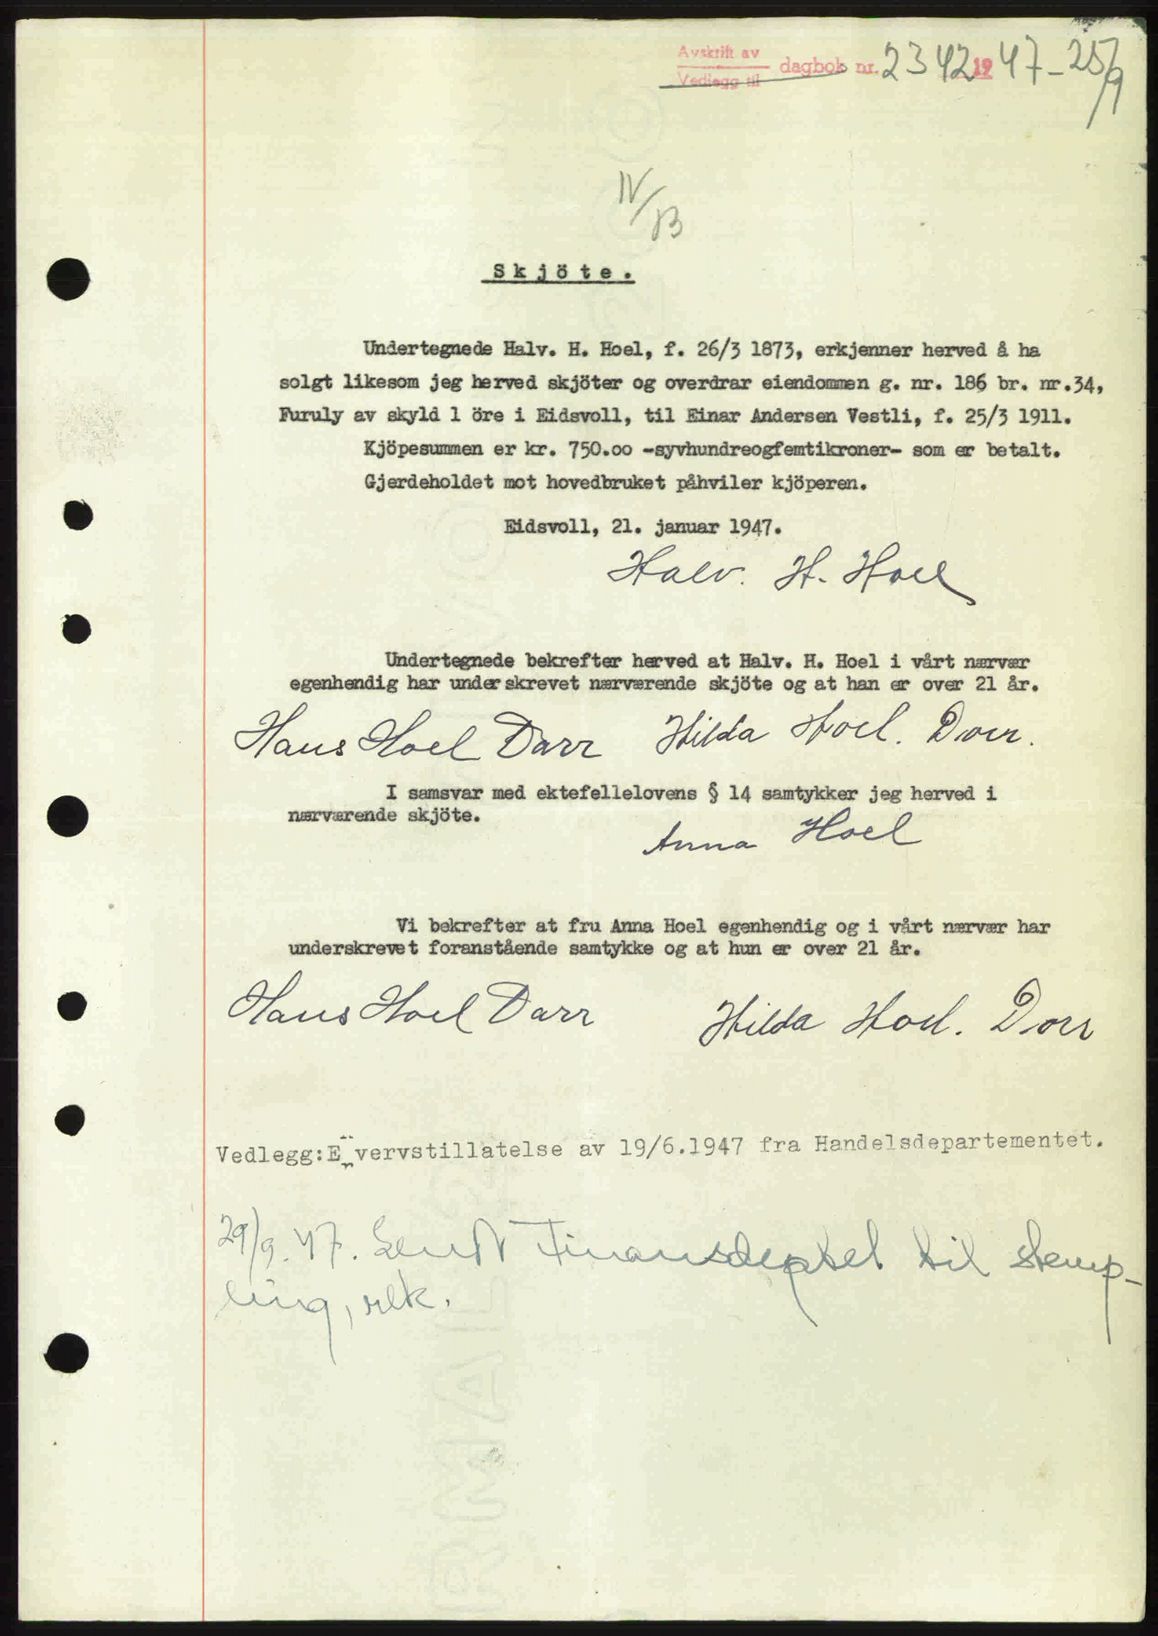 Avskrift av
Vedlegg til dagbok nr. 2342 1947-25/9
IV/B
Skjöte.
Undertegnede Halv. H. Hoel, f. 26/3 1873, erkjenner herved å ha
solgt likesom jeg herved skjöter og overdrar eiendommen g. nr. 186 br. nr.34,
Furuly av skyld 1 öre i Eidsvoll, til Einar Andersen Vestli, f. 25/3 1911.
Kjöpesummen er kr. 750.oo -syvhundreogfemtikroner- som er betalt.
Gjerdeholdet mot hovedbruket påhviler kjöperen.
Eidsvoll, 21. januar 1947.
Halv. H. Hoel
Undertegnede bekrefter herved at Halv. H. Hoel i vårt nærvær
egenhendig har underskrevet nærværende skjöte og at han er over 21 år.
Hans Hoel Darr Hilda Hoel. Dorr.
I samsvar med ektefellelovens § 14 samtykker jeg herved i
nærværende skjöte.
Anna Hoel
Vi bekrefter at fru Anna Hoel egenhendig og i vårt nærvær har
underskrevet foranstående samtykke og at hun er over 21 år.
Hans Hoel Darr Hilda Hoel. Dorr
Vedlegg: Ervervstillatelse av 19/6.1947 fra Handelsdepartementet.
29/9. 47. Sendt Finansdeptet til stemp-
ling, rek.